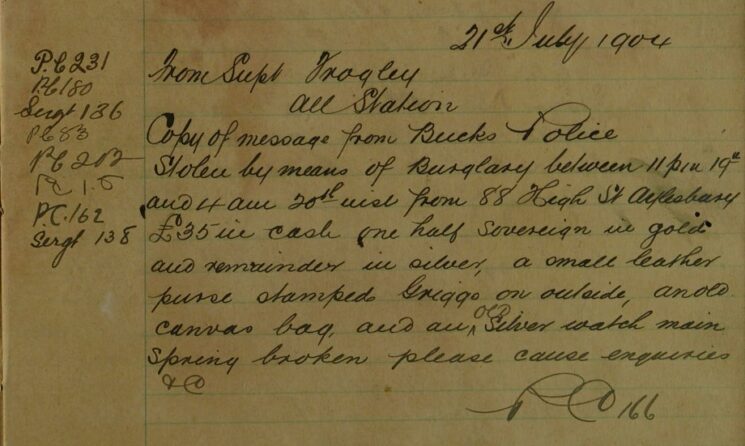 21st July 1904
P.C 231
P.C 180
Sergt 136
P.C 83
P.C 202
P.C 15
PC. 162
Sergt 138
From Supt Frogley
All Station
Copy of message from Bucks Police
Stolen by means of Burglary between 11 pm 19th
and 4 am 20th inst from 88 High St Aylesbury
£35 in cash one half Sovereign in gold
and remainder in silver, a small leather
purse stamped Griggs on outside, an old
canvas bag, and an old Silver watch main
Spring broken please cause enquiries
&c
PC 166